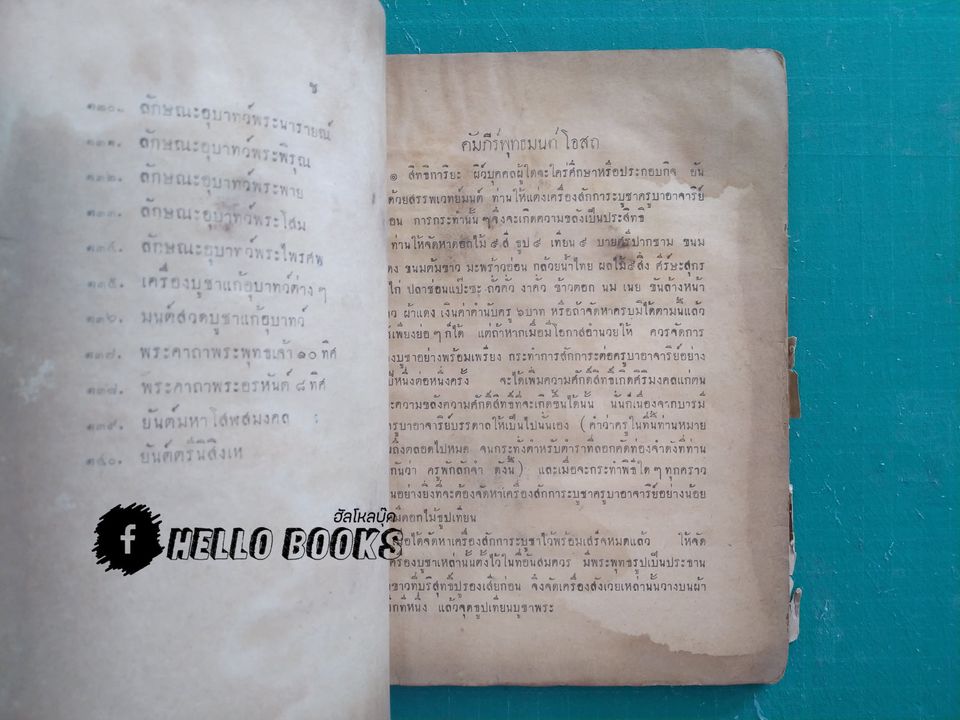 ช
๑๓๐. ลักษณะอุบาทว์พระนารายณ์
๑๓๑. ลักษณะอุบาทว์พระพิรุณ
๑๓๒. ลักษณะอุบาทว์พระพาย
๑๓๓. ลักษณะอุบาทว์พระโสม
๑๓๔. ลักษณะอุบาทว์พระไพรศพ
๑๓๕. เครื่องบูชาแก้อุบาทว์ต่างๆ
๑๓๖. มนต์สวดบูชาแก้อุบาทว์
๑๓๗. พระคาถาพระพุทธเจ้า ๑๐ ทิศ
๑๓๘. พระคาถาพระอรหันต์ ๘ ทิศ
๑๓๙. ยันต์มหาโสฬสมงคล
๑๔๐. ยันต์ตรีนิสิงเห
คัมภีร์พุทธมนต์โอสถ
๑ สิทธิการิยะ ผิว์บุคคลผู้ใดจะใคร่ศึกษาหรือประกอบกิจ อัน
ด้วยสรรพเวทย์มนต์ ท่านให้แต่งเครื่องสักการะบูชาครูบาอาจารีย์
อน การกระทำนั้นๆจึ่งจะเกิดความขลังเป็นประสิทธิ
ท่านให้จัดหาดอกไม้ ๕ สี ธูป ๕ เทียน ๕ บายศรีปากชาม ขนม
แดง ขนมต้มขาว มะพร้าวอ่อน กล้วยน้ำไทย ผลไม้ ๕ สิ่ง ศีร์ษะสุกร
ไก่ ปลาช่อนแป๊ะซะ ถั่วคั่ว งาคั่ว ข้าวตอก นม เนย ขันล้างหน้า
ว ผ้าแดง เงินค่าคำนับครู ๖ บาท หรือถ้าจัดหาครบมิได้ตามนี้แล้ว
เพียงย่อๆก็ได้ แต่ถ้าหากเมื่อมีโอกาสอำนวยให้ ควรจัดการ
งบูชาอย่างพร้อมเพรียง กระทำการสักการะต่อครูบาอาจารีย์อย่าง
ปีหนึ่งต่อหนึ่งครั้ง จะได้เพิ่มความศักดิ์สิทธิ์เกิดศิริมงคลแก่ตน
ะความขลังความศักดิ์สิทธิ์ที่จะเกิดขึ้นได้นั้น นั้นก็เนื่องจากบารมี
ครูบาอาจารีย์บรรดาลให้เป็นไปนั้นเอง (คำว่าครูในที่นี้ท่านหมาย
มถึงตลอดไปหมด จนกระทั่งตำหรับตำราที่ลอกคัดท่องจำดังที่ท่าน
กันว่า ครูพักลักจำ ดังนี้) และเมื่อจะกระทำพิธีใดๆทุกคราว
นอย่างยิ่งที่จะต้องจัดหาเครื่องสักการะบูชาครูบาอาจารีย์อย่างน้อย
มีดอกไม้ธูปเทียน
เมื่อได้จัดหาเครื่องสักการะบูชาไว้พร้อมเสร็จหมดแล้ว ให้จัด
ครื่องบูชาเหล่านั้นตั้งไว้ในที่อันสมควร มีพระพุทธรูปเป็นประธาน
ขาวที่บริสุทธิ์ปูรองเสียก่อน จึงจัดเครื่องสังเวยเหล่านั้นวางบนผ้า
อีกทีหนึ่ง แล้วจุดธูปเทียนบูชาพระ
ฮัลโหลบุ๊ค
f HELLO BOOKS